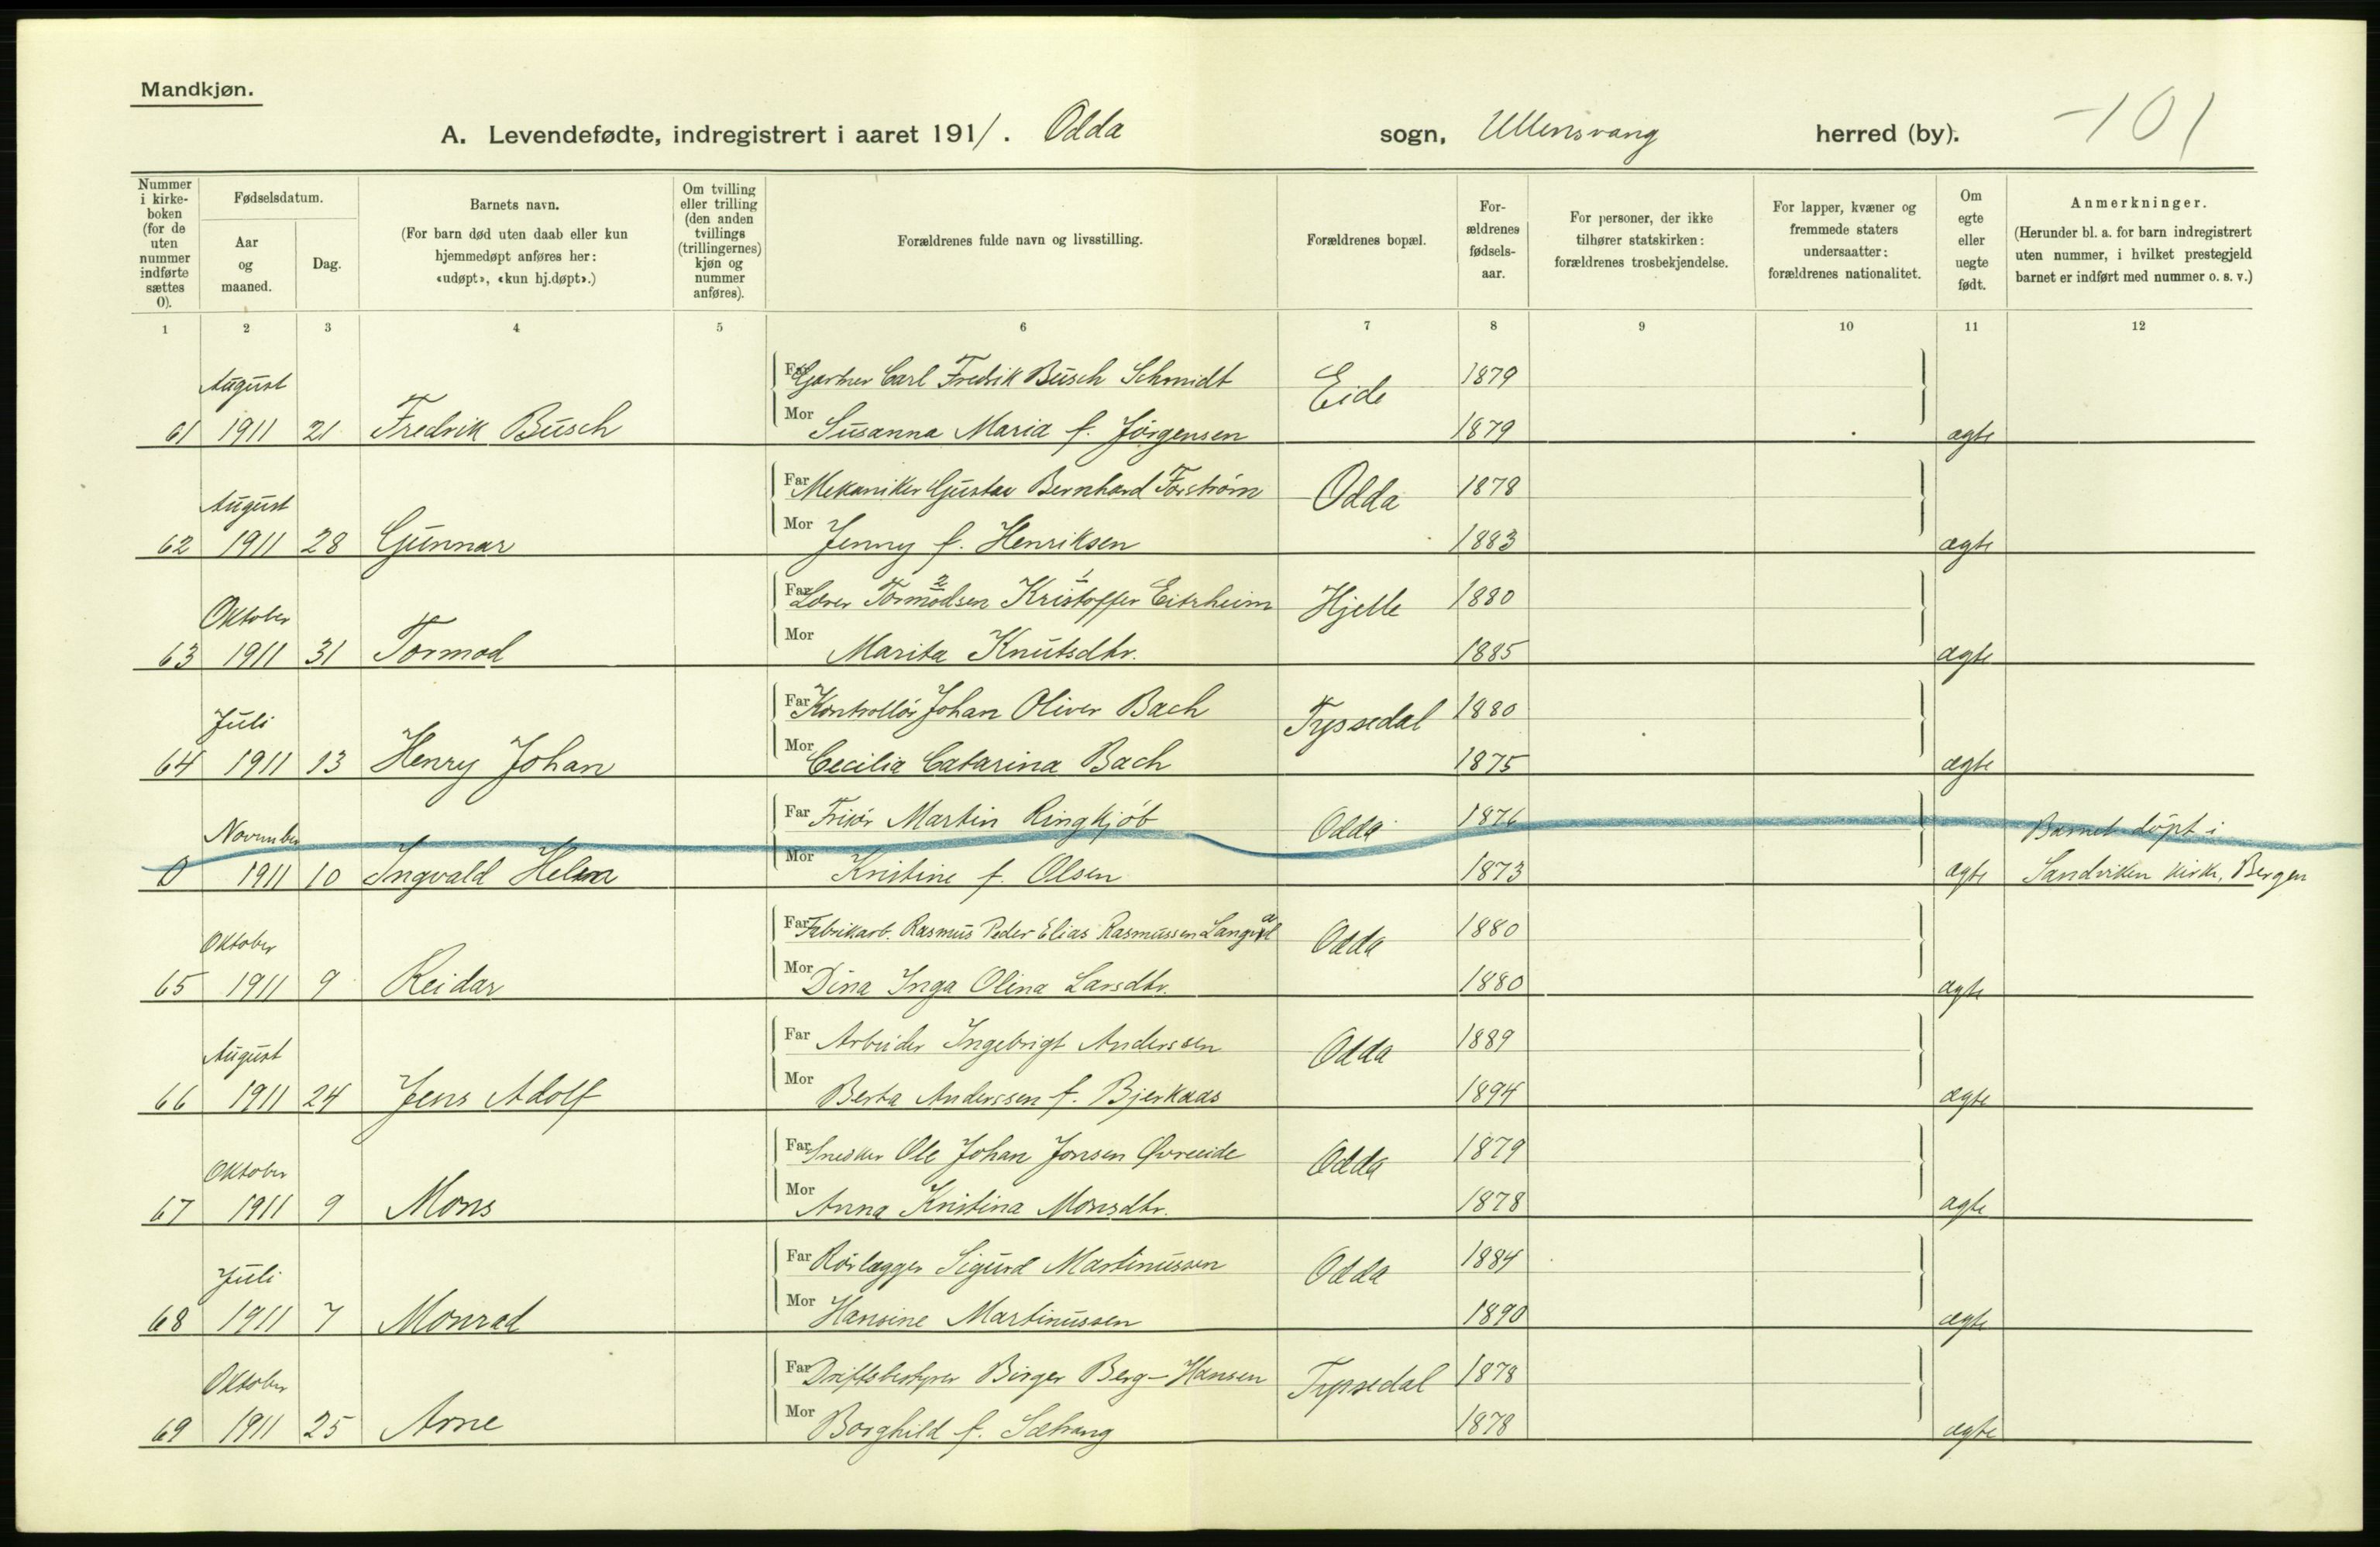 Mandkjøn.
A. Levendefødte, indregistrert i aaret 1911. Odda sogn, Ullensvang herred (by). 101
Nummer i kirkeboken (for de uten nummer indførte sættes 0).
Fødselsdatum.
Aar og maaned.
Dag.
Barnets navn.
(For barn død uten daab eller kun hjemmedøpt anføres her: «udøpt», «kun hj.døpt».)
Om tvilling eller trilling (den anden tvillings (trillingernes) kjøn og nummer anføres).
Forældrenes fulde navn og livsstilling.
Forældrenes bopæl.
Forældrenes fødselsaar.
For personer, der ikke tilhører statskirken: forældrenes trosbekjendelse.
For lapper, kvæner og fremmede staters undersaatter: forældrenes nationalitet.
Om egte eller uegte født.
Anmerkninger.
(Herunder bl. a. for barn indregistrert uten nummer, i hvilket prestegjeld barnet er indført med nummer o. s. v.)
1 2 3 4 5 6 7 8 9 10 11 12
August Far Gartner Carl Fredrik Busch Schmidt Eide 1879
61 1911 21 Fredrik Busch Mor Susanna Maria f. Jörgensen 1879 ægte
August Far Mekaniker Gustav Bernhard Forström Odda 1878
62 1911 28 Gunnar Mor Jenny f. Henriksen 1883 ægte
Oktober Far Lærer Tormodsen 2 Kristoffer 1 Eitrheim Hjelle 1880
63 1911 31 Tormod Mor Marita Knutsdtr. 1885 ægte
Juli Far Kontrollör Johan Oliver Bach Tyssedal 1880
64 1911 13 Henry Johan Mor Cecilia Catarina Bach 1875 ægte
November Far Frisör Martin Ringkjöb Odda 1876 Barnet döpt i
0 1911 10 Ingvald Mor Kristine f. Olsen 1873 ægte Sandviken kirke, Bergen
Oktober Far Fabrikarb. Rasmus Peder Elias Rasmussen Odda 1880
65 1911 9 Reidar Mor Dina Inga Olina Larsdtr. 1880 ægte
August Far Arbeider Ingebrigt Anderssen Odda 1889
66 1911 24 Jens Adolf Mor Berta Anderssen f. Bjerkaas 1894 ægte
Oktober Far Snedker Ole Johan Jonsen Øvreeide Odda 1879
67 1911 9 Mons Mor Anna Kristina Monsdtr. 1878 ægte
Juli Far Rörlægger Sigurd Martinussen Odda 1884
68 1911 7 Monrad Mor Hansine Martinussen 1890 ægte
Oktober Far Driftsbestyrer Birger Berg-Hansen Tyssedal 1878
69 1911 25 Arne Mor Borghild f. 1878 ægte